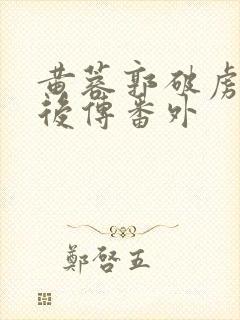 黄蓉郭破虏
後傳番外
鄭啓五